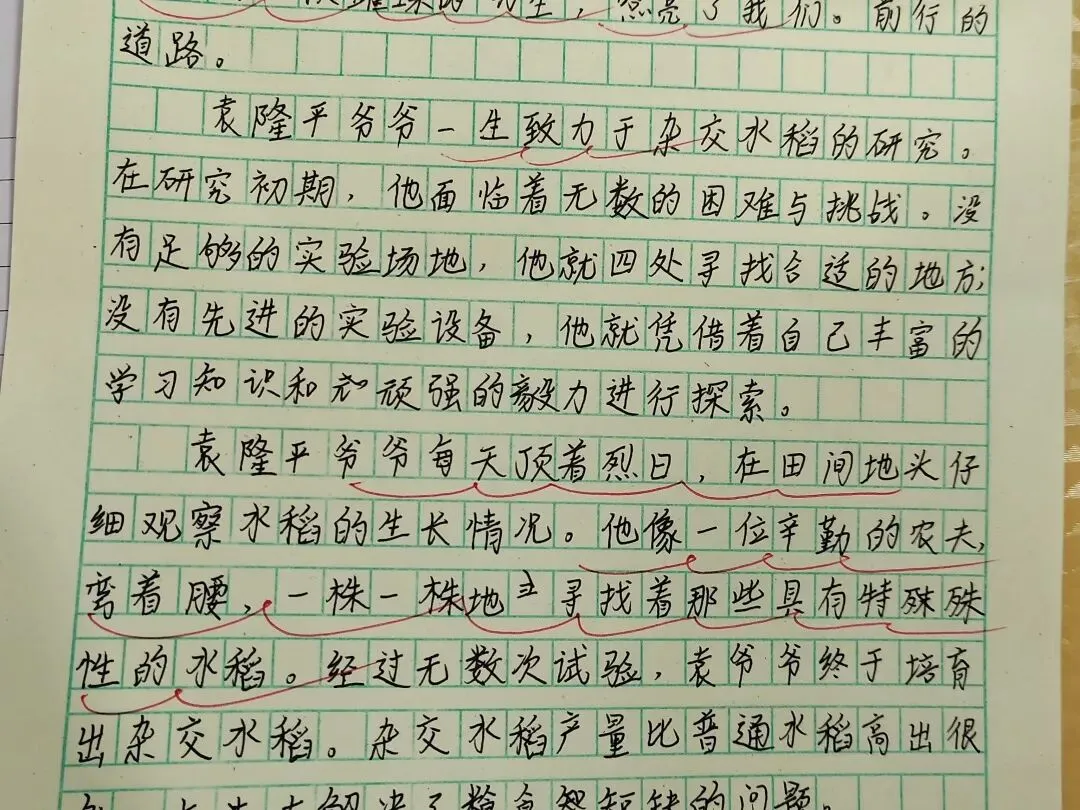 的方生，照亮了我们。前行的
道路。
袁隆平爷爷一生致力于杂交水稻的研究。
在研究初期，他面临着无数的困难与挑战。没
有足够的实验场地，他就四处寻找合适的地方；
没有先进的实验设备，他就凭借着自己丰富的
学习知识和和顽强的毅力进行探索。
袁隆平爷爷每天顶着烈日，在田间地头仔
细观察水稻的生长情况。他像一位辛勤的农夫，
弯着腰，一株一株地寻找着那些具有特殊殊
性的水稻。经过无数次试验，袁爷爷终于培育
出杂交水稻。杂交水稻产量比普通水稻高出很
解决了粮食短缺的问题。